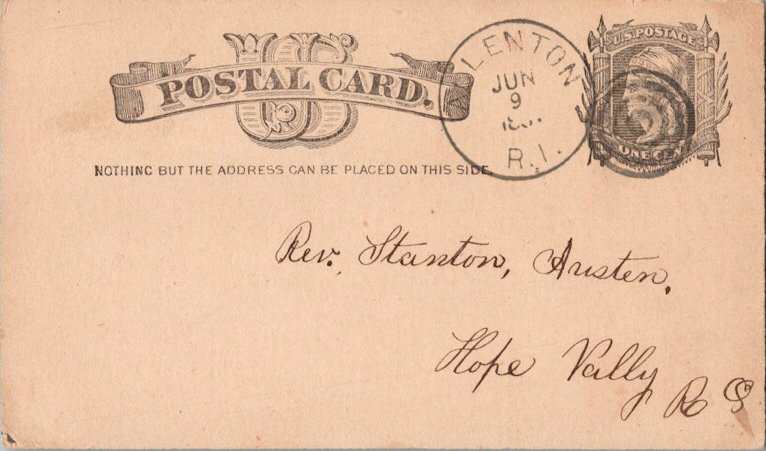 U S
POSTAL CARD.
NOTHING BUT THE ADDRESS CAN BE PLACED ON THIS SIDE.
ALLENTON
JUN
9
R.I.
U.S. POSTAGE
ONE CENT
Rev. Stanton, Austen,
Hope Vally
R I